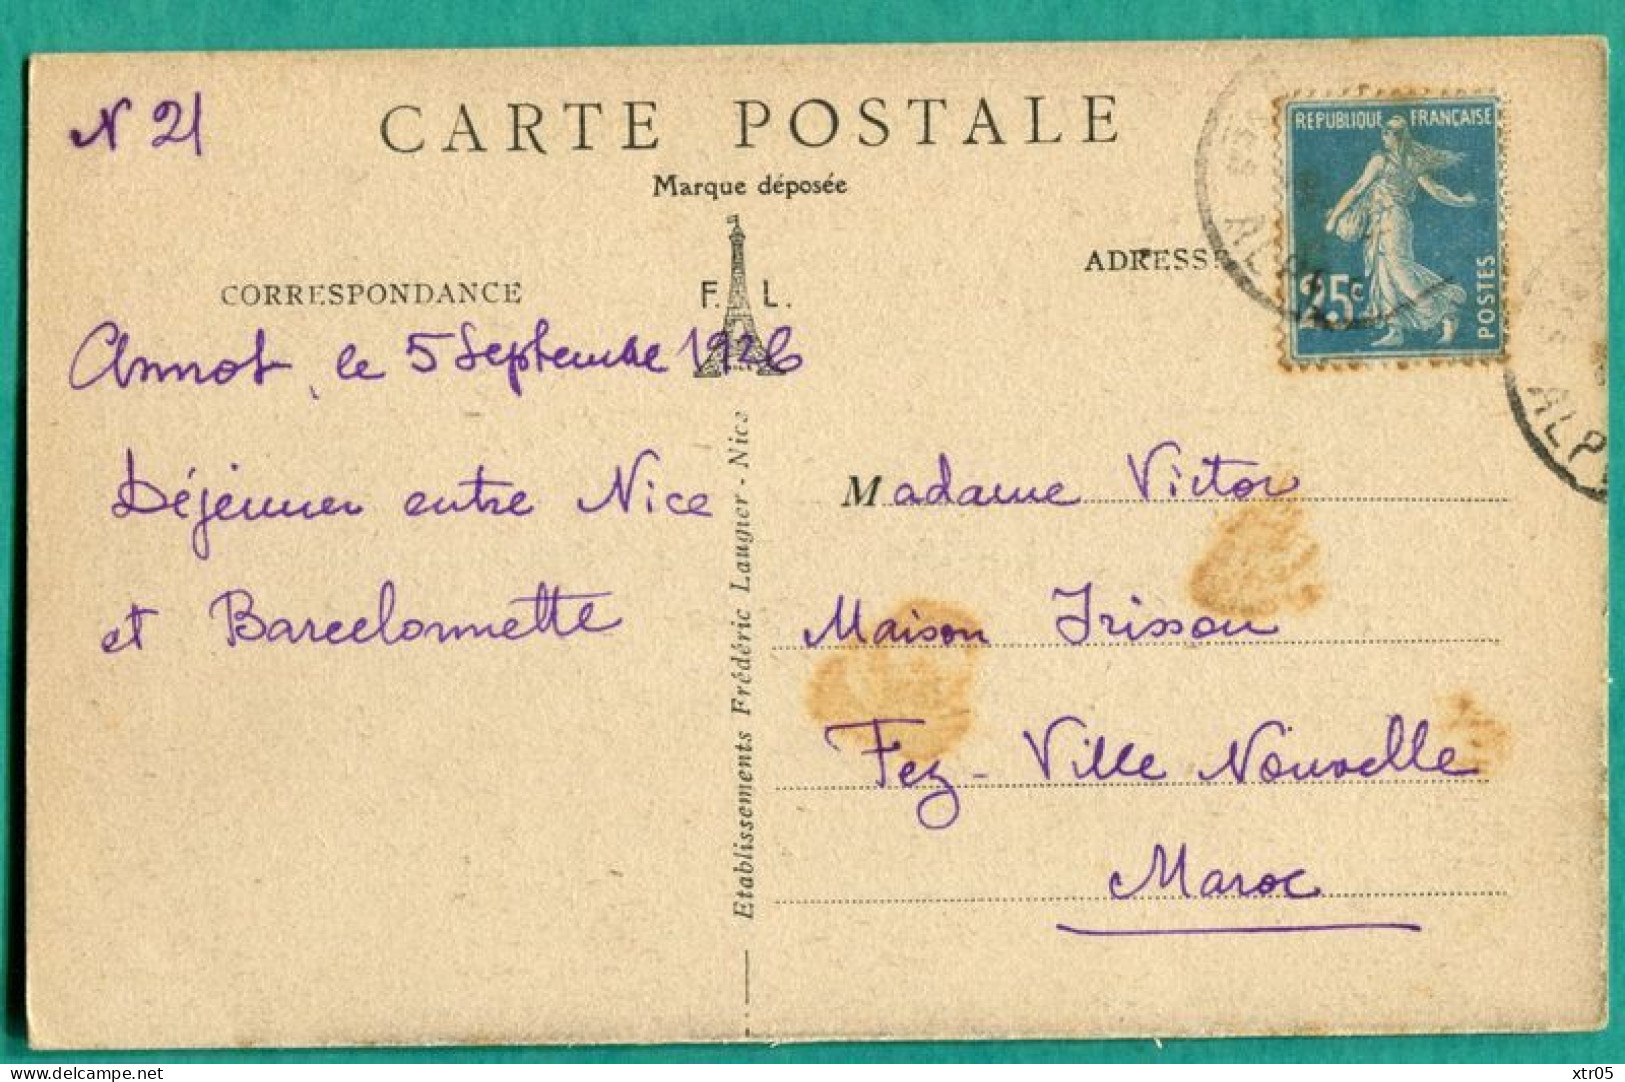 N 21
CARTE POSTALE
Marque déposée
REPUBLIQUE FRANÇAISE
25c
POSTES
ALP
ALP
CORRESPONDANCE
F. L.
ADRESSE
Annot, le 5 Septembre 1926
Déjeuner entre Nice
et Barcelonnette
Etablissements Frédéric Laugier - Nice
Madame Victor
Maison Frisson
Fez - Ville Nouvelle
Maroc
www.delcampe.net
xtr05